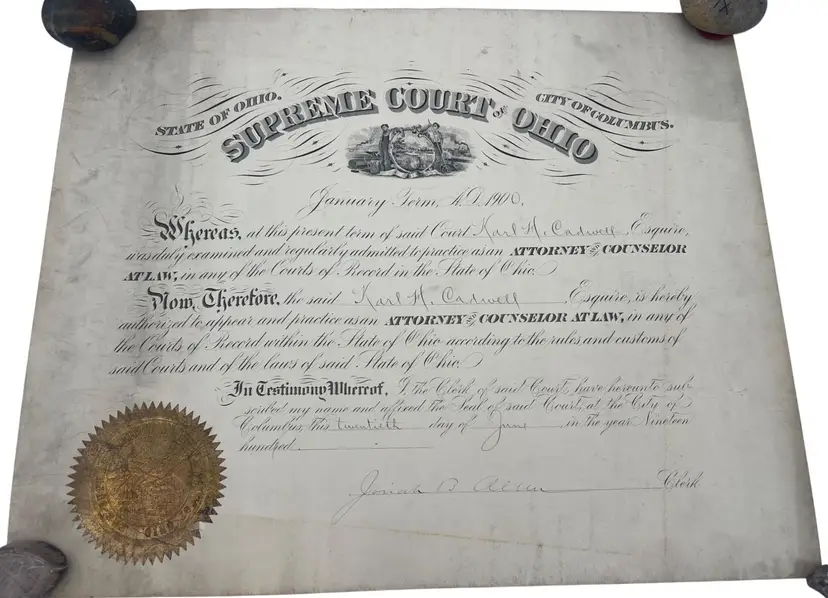 STATE OF OHIO.
CITY OF COLUMBUS.
SUPREME COURT OF OHIO
January Term, A.D. 1900.
Whereas, at this present term of said Court Karl H. Cadwell, Esquire,
was duly examined and regularly admitted to practice as an ATTORNEY AND COUNSELOR
AT LAW, in any of the Courts of Record in the State of Ohio.
Now, Therefore, the said Karl H. Cadwell Esquire, is hereby
authorized to appear and practice as an ATTORNEY AND COUNSELOR AT LAW, in any of
the Courts of Record within the State of Ohio according to the rules and customs of
said Courts and of the laws of said State of Ohio.
In Testimony Whereof, I, the Clerk of said Court, have hereunto sub-
scribed my name and affixed the Seal of said Court, at the City of
Columbus, this twentieth day of June in the year Nineteen
hundred
Josiah B. Allen Clerk
OHIO